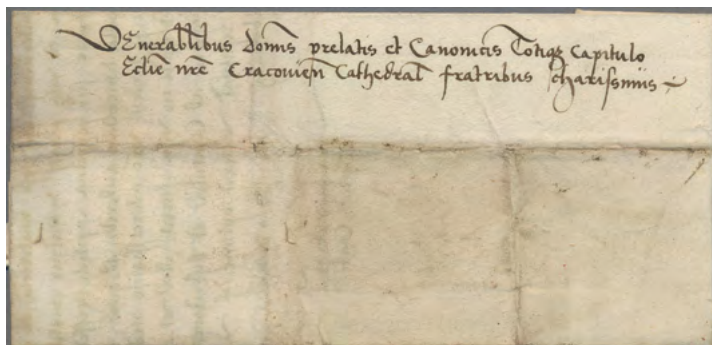 Venerabilibus domīs prelatis et Canonicis Totiqȝ Capitulo
Eccliē nrē Cracovieñ Cathedral fratribus charissimis